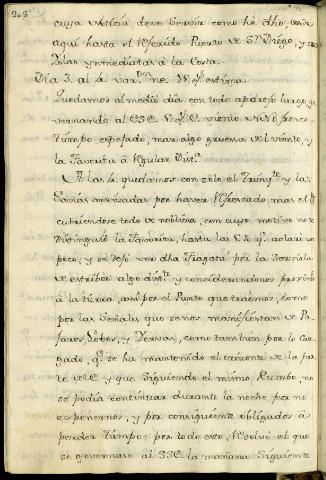 cuya noticia deve Servir como he dho, desde
aqui hasta el Referido Puerto de Sn. Diego, y sus
Yslas ynmediatas à la Costa.
Dia 3. al 4. varon. ne.
Quedamos al medio dia con todo aparejo largo, go-
vernando al ESE. viento fresco.
tiempo espesado, mar algo gruesa del viento, y
la Favorita à Regular Dista.
A las 4 quedamos con solo el Trinqte. y la
Gavias arrizadas por haver Refrescado mas el
cubriendose todo de neblina, con cuyo motivo no se
Distinguiò la Favorita, hasta las qe. aclarò un
poco, y se dejò ver dha Fragata por la
de estribor algo distte. y considerandonos proximos
à la tierra, assi por el Punto que traemos, como
por las Señales que se nos manifiestan de Pa-
jaros, Lobos, y Yervas, como tambien por lo car-
gado, qe. se ha mantenido el orizonte de la par-
te del E. y que siguiendo el mismo Rumbo, no
se podia continuar durante la noche por no
esponernos, y por consiguiente obligados à
perder tiempo: por todo esto, Resolvi el que
se governase al SSE. la mañana Siguiente